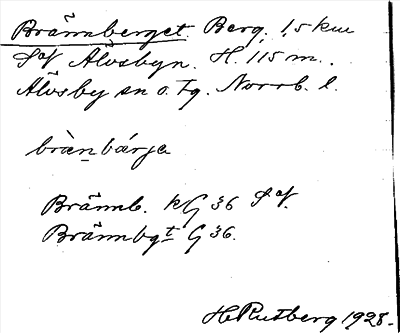 Brännberget. Berg, 1,5 km
S af Älvsbyn. H. 115 m.
Älvsby sn o. tg. Norrb. l.
bràn bárja
Brännb. kG 36 S af.
Brännbgt G 36.
H Rutberg 1928.